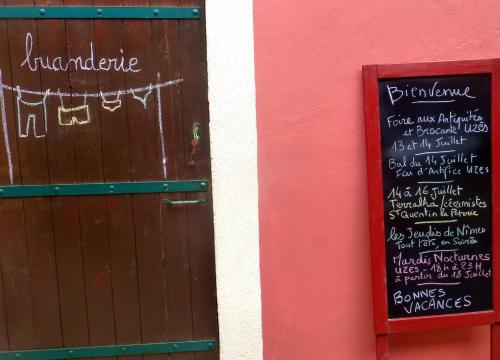 buanderie
Bienvenue
Foire aux Antiquités
et Brocante UZES
13 et 14 Juillet
Bal du 14 Juillet
Feu d'Artifice UZES
14 à 16 Juillet
Terralha/céramistes
St Quentin la Poterie
les Jeudis de Nîmes
Tout l'été, en Soirée
Mardis Nocturnes
UZES - 18h à 23H
à partir du 18 Juillet
BONNES
VACANCES